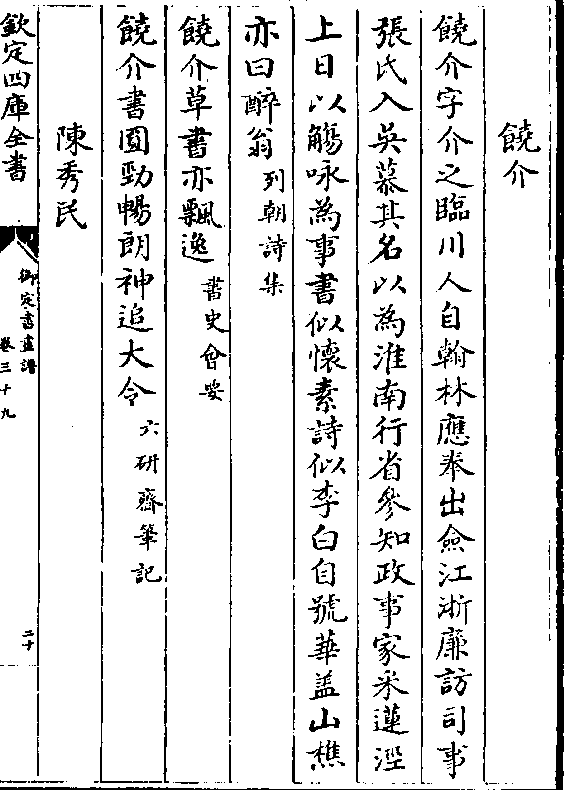 饒介
饒介字介之臨川人自翰林應奉出僉江浙廉訪司事
張氏入吳慕其名以為淮南行省參知政事家采蓮涇
上日以觴咏為事書似懷素詩似李白自號華盖山樵
亦曰醉翁列朝詩集
饒介草書亦飄逸書史會要
饒介書圓勁暢朗神追大令六研齋筆記
陳秀民
欽定四庫全書
御定書畫譜
卷三十九
二十